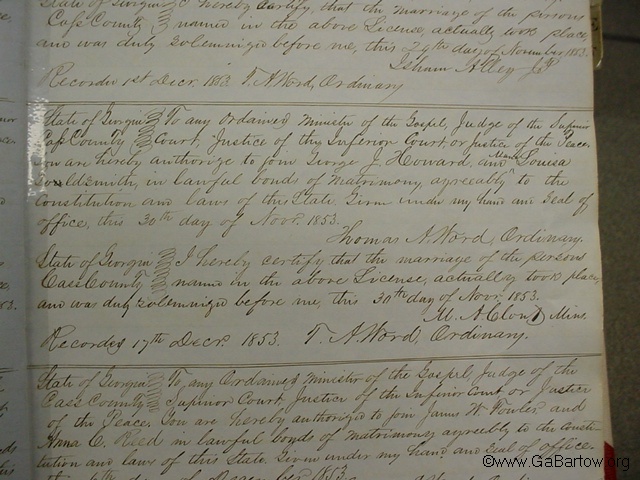 State of Georgia I hereby Certify, that the marriage of the persons
Cass County named in the above License, actually took place,
and was duly solemnized before me, this 29th day of November, 1853.
Isham Alley J.P.
Recorded 1st Decr. 1853 T. A. Word, Ordinary
State of Georgia To any Ordained Minister of the Gospel, Judge of the Superior
Cass County Court, Justice of the Inferior Court, or Justice of the Peace.
You are hereby authorize to join George J. Howard, and Louisa
Goldsmith, in lawful bonds of Matrimony, agreeably to the
Constitution and laws of this State. Given under my hand and Seal of
office, this 30th day of Novr. 1853.
Thomas A. Word, Ordinary.
State of Georgia I hereby certify that the marriage of the persons
Cass County named in the above License, actually took place,
and was duly solemnized before me, this 30th day of Novr. 1853.
M. A. Clontz Mins.
Recorded 17th Decr. 1853. T. A. Word, Ordinary.
State of Georgia To, any Ordained Minister of the Gospel, Judge of the
Cass County Superior Court, Justice of the Inferior Court or Justice
of the Peace. You are hereby authorized to join James W. and
Anna C. Reed in lawful bonds of matrimony agreeably to the Consti-
tution and laws of this State. Given under my hand and Seal of office.
1853.
©www.GaBartow.org